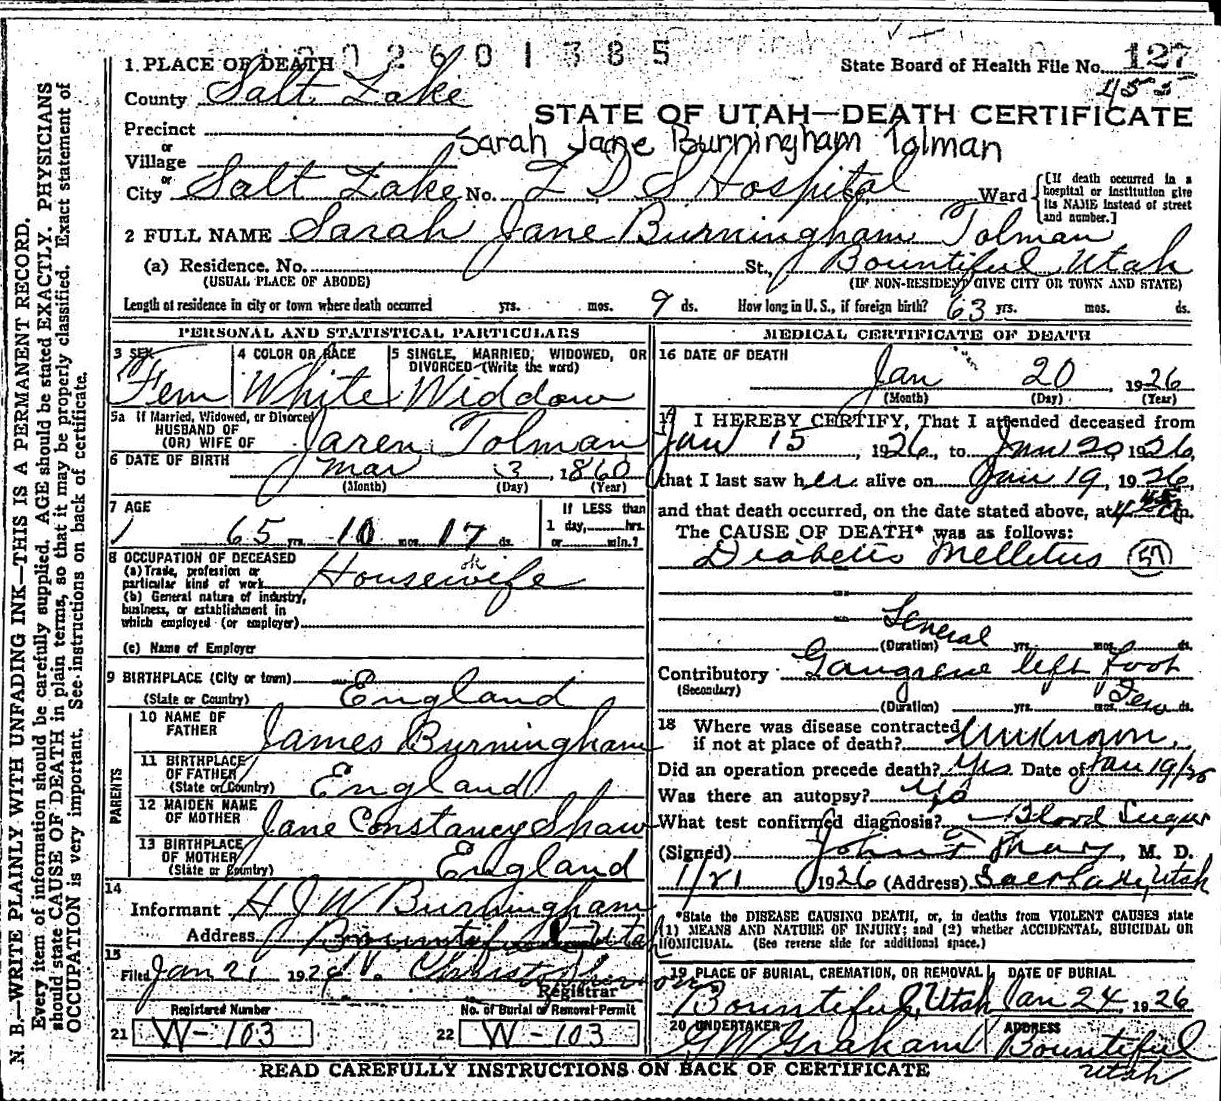 2601385
1. PLACE OF DEATH
State Board of Health File No. 127
County Salt Lake
STATE OF UTAH—DEATH CERTIFICATE
Precinct
or
Sarah Jane Burningham Tolman
Village
or
City Salt Lake No. L D S Hospital Ward
[If death occurred in a hospital or institution give its NAME instead of street and number.]
2 FULL NAME Sarah Jane Burningham Tolman
(a) Residence. No. St., Bountiful, Utah
(USUAL PLACE OF ABODE) (IF NON-RESIDENT GIVE CITY OR TOWN AND STATE)
Length of residence in city or town where death occurred yrs. mos. 9 ds. How long in U.S., if foreign birth? 63 yrs. mos. ds.
PERSONAL AND STATISTICAL PARTICULARS
3 SEX Fem
4 COLOR OR RACE White
5 SINGLE, MARRIED, WIDOWED, OR DIVORCED (Write the word) Widdow
5a If Married, Widowed, or Divorced
HUSBAND OF
(OR) WIFE OF Jaren Tolman
6 DATE OF BIRTH Mar 3, 1860
(Month) (Day) (Year)
7 AGE 65 yrs. 10 mos. 17 ds.
If LESS than
1 day, hrs.
or min.?
8 OCCUPATION OF DECEASED
(a) Trade, profession or
particular kind of work Housewife
(b) General nature of industry,
business, or establishment in
which employed (or employer)
(c) Name of Employer
9 BIRTHPLACE (City or town)
(State or Country) England
PARENTS
10 NAME OF
FATHER James Burningham
11 BIRTHPLACE
OF FATHER
(State or Country) England
12 MAIDEN NAME
OF MOTHER Jane Constancy Shaw
13 BIRTHPLACE
OF MOTHER
(State or Country) England
14
Informant H J W Burningham
Address Bountiful Utah
15
Filed Jan 21 192
Registrar
Registered Number
21 W-103
No. of Burial or Removal Permit
22 W-103
MEDICAL CERTIFICATE OF DEATH
16 DATE OF DEATH
Jan 20, 1926
(Month) (Day) (Year)
17 I HEREBY CERTIFY, That I attended deceased from
Jan 15, 1926, to Jan 20 1926,
that I last saw her alive on Jan 19, 1926,
and that death occurred, on the date stated above, at m.
The CAUSE OF DEATH* was as follows:
Diabetis Mellitus 57
(Duration) Several yrs. mos. ds.
Contributory Gangrene left Foot
(Secondary)
(Duration) yrs. mos. Few ds.
18 Where was disease contracted
if not at place of death? Unknown.
Did an operation precede death? Yes Date of Jan 19/26
Was there an autopsy? No
What test confirmed diagnosis? Blood Sugar
(Signed) John F, M. D.
1/21 1926 (Address) Salt Lake, Utah
*State the DISEASE CAUSING DEATH, or, in deaths from VIOLENT CAUSES state
(1) MEANS AND NATURE OF INJURY; and (2) whether ACCIDENTAL, SUICIDAL OR
HOMICIDAL. (See reverse side for additional space.)
19 PLACE OF BURIAL, CREMATION, OR REMOVAL Bountiful, Utah
DATE OF BURIAL Jan 24, 1926
20 UNDERTAKER G W Graham
ADDRESS Bountiful
Utah
READ CAREFULLY INSTRUCTIONS ON BACK OF CERTIFICATE
N. B.—WRITE PLAINLY WITH UNFADING INK—THIS IS A PERMANENT RECORD.
Every item of information should be carefully supplied. AGE should be stated EXACTLY. PHYSICIANS
should state CAUSE OF DEATH in plain terms, so that it may be properly classified. Exact statement of
OCCUPATION is very important. See instructions on back of certificate.